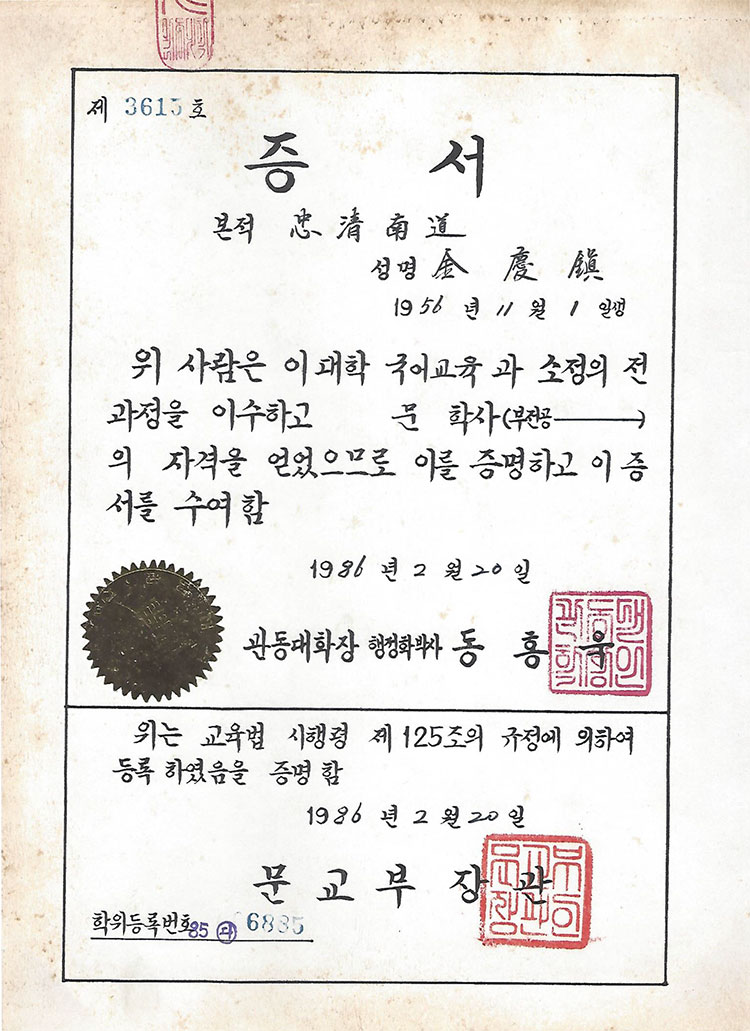 제 3615 호
증 서
본적 忠清南道
성명 金慶鎭
1956 년 11 월 1 일생
위 사람은 이 대학 국어교육 과 소정의 전
과정을 이수하고 문 학사(부전공 )
의 자격을 얻었으므로 이를 증명하고 이 증
서를 수여함
1986 년 2 월 20 일
관동대학장 행정학박사 동 홍 욱
위는 교육법 시행령 제125조의 규정에 의하여
등록 하였음을 증명 함
1986 년 2 월 20 일
문 교 부 장 관
학위등록번호 85 6885